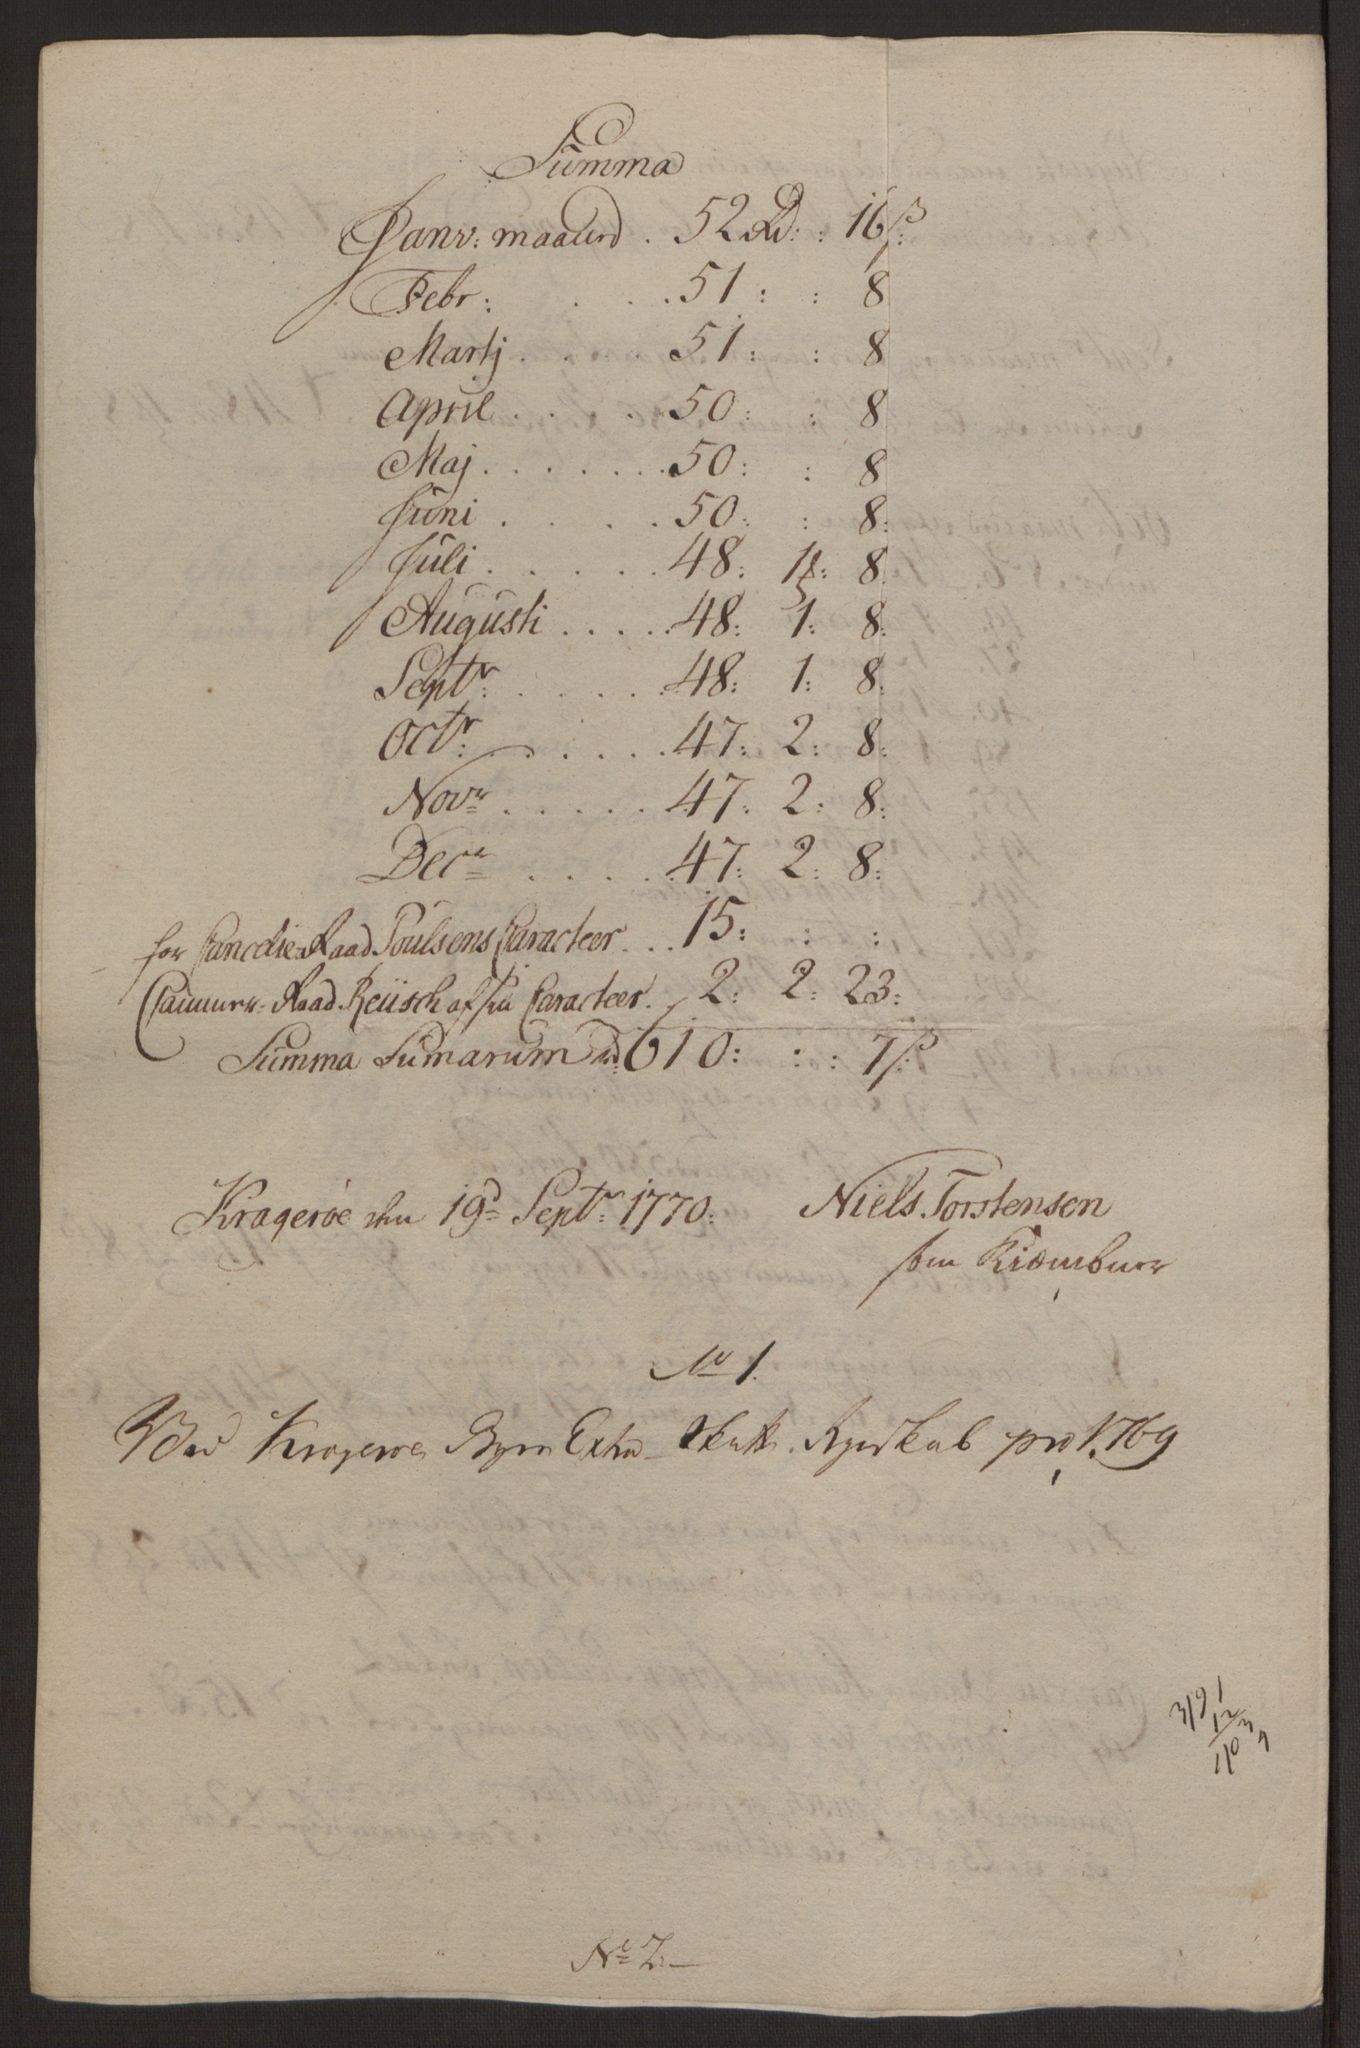 Summa
Janv: maaned . 52 Rd: : 16 ß:
Febr: . . . 51: : 8
Martj . . . 51: : 8
April . . . 50: : 8
Maj . . . . . . . 50: : 8
Juni . . . . 50: : 8:
Juli . . . . . . 48: 1: 8
Augusti . . . . . 48: 1: 8:
Septr: . . . . . 48: 1: 8:
Octr: . . . . . 47: 2: 8:
Novr . . . . . 47: 2: 8:
Decr . . . . . 47: 2: 8:
for Cancelie Raad Poulsens Caracteer . . . 15: : :
Cammer-Raad Reüsch af sin Caracteer . 2: 2: 23:
Summa Sumarum rd 610: : : 7 ß:
Kragerøe den 19d Septr: 1770: Niels Torstensen
som Kiæmbner
No 1.
Ved Kragerøe Byes Extra Skatte Regnskab pro 1769
No 2.